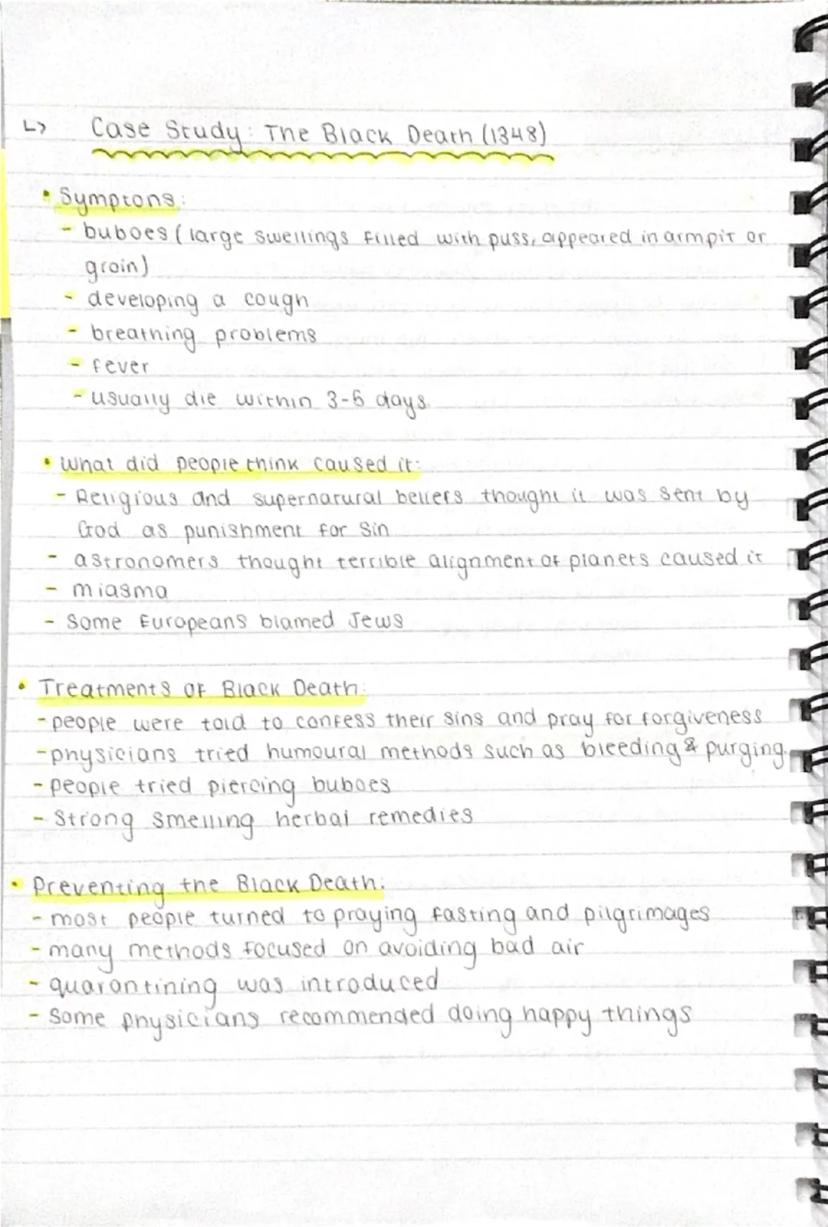 ↳ Case Study: The Black Death (1348)
• Symptons:
- buboes (large swellings filled with puss, appeared in armpit or
groin)
- developing a cough
- breathing problems
- fever
- usually die within 3-6 days
• What did people think caused it:
- Religious and supernatural beliefs thought it was sent by
God as punishment for sin
- astronomers thought terrible alignment of planets caused it
- miasma
- some Europeans blamed Jews
• Treatments of Black Death:
- people were told to confess their sins and pray for forgiveness
- physicians tried humoural methods such as bleeding & purging
- people tried piercing buboes
- Strong smelling herbal remedies
• Preventing the Black Death:
- most people turned to praying fasting and pilgrimages
- many methods focused on avoiding bad air
- quarantining was introduced
- Some physicians recommended doing happy things